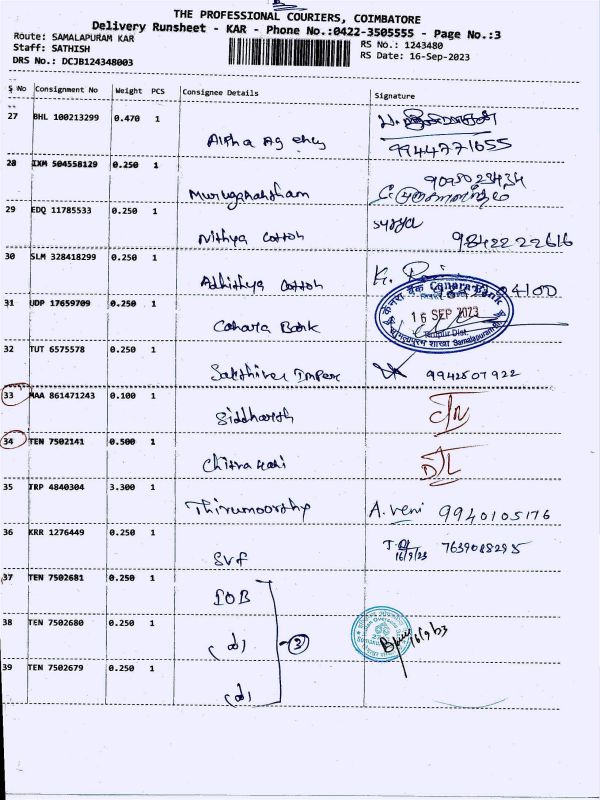 THE PROFESSIONAL COURIERS, COIMBATORE
Delivery Runsheet - KAR - Phone No.:0422-3505555 - Page No.:3
Route: SAMALAPURAM KAR
RS No.: 1243480
Staff: SATHISH
RS Date: 16-Sep-2023
DRS No.: DCJB124348003
S No Consignment No Weight PCS Consignee Details Signature
27 BHL 100213299 0.470 1
Alpha Agency 9944771055
28 IXM 504558129 0.250 1
Muruganantham
29 EDQ 11785533 0.250 1 surya
Nithya Cotton 9842222616
30 SLM 328418299 0.250 1
Adhithya Cotton K.
31 UDP 17659709 0.250 1 केनरा बैंक Canara Bank
16 SEP 2023
Canara Bank Tirupur Dist.
Samalapuram
32 TUT 6575578 0.250 1
Sakthivel Impex 9942807922
33 MAA 861471243 0.100 1
Siddharth
34 TEN 7502141 0.500 1
Chitra DL
35 TRP 4840304 3.300 1
Thirumoorthy A. Veni 9940105176
36 KRR 1276449 0.250 1
SVF 16/9/23 7639088295
37 TEN 7502681 0.250 1
IOB
38 TEN 7502680 0.250 1
(do) 3 16/9/23
39 TEN 7502679 0.250 1
(do)